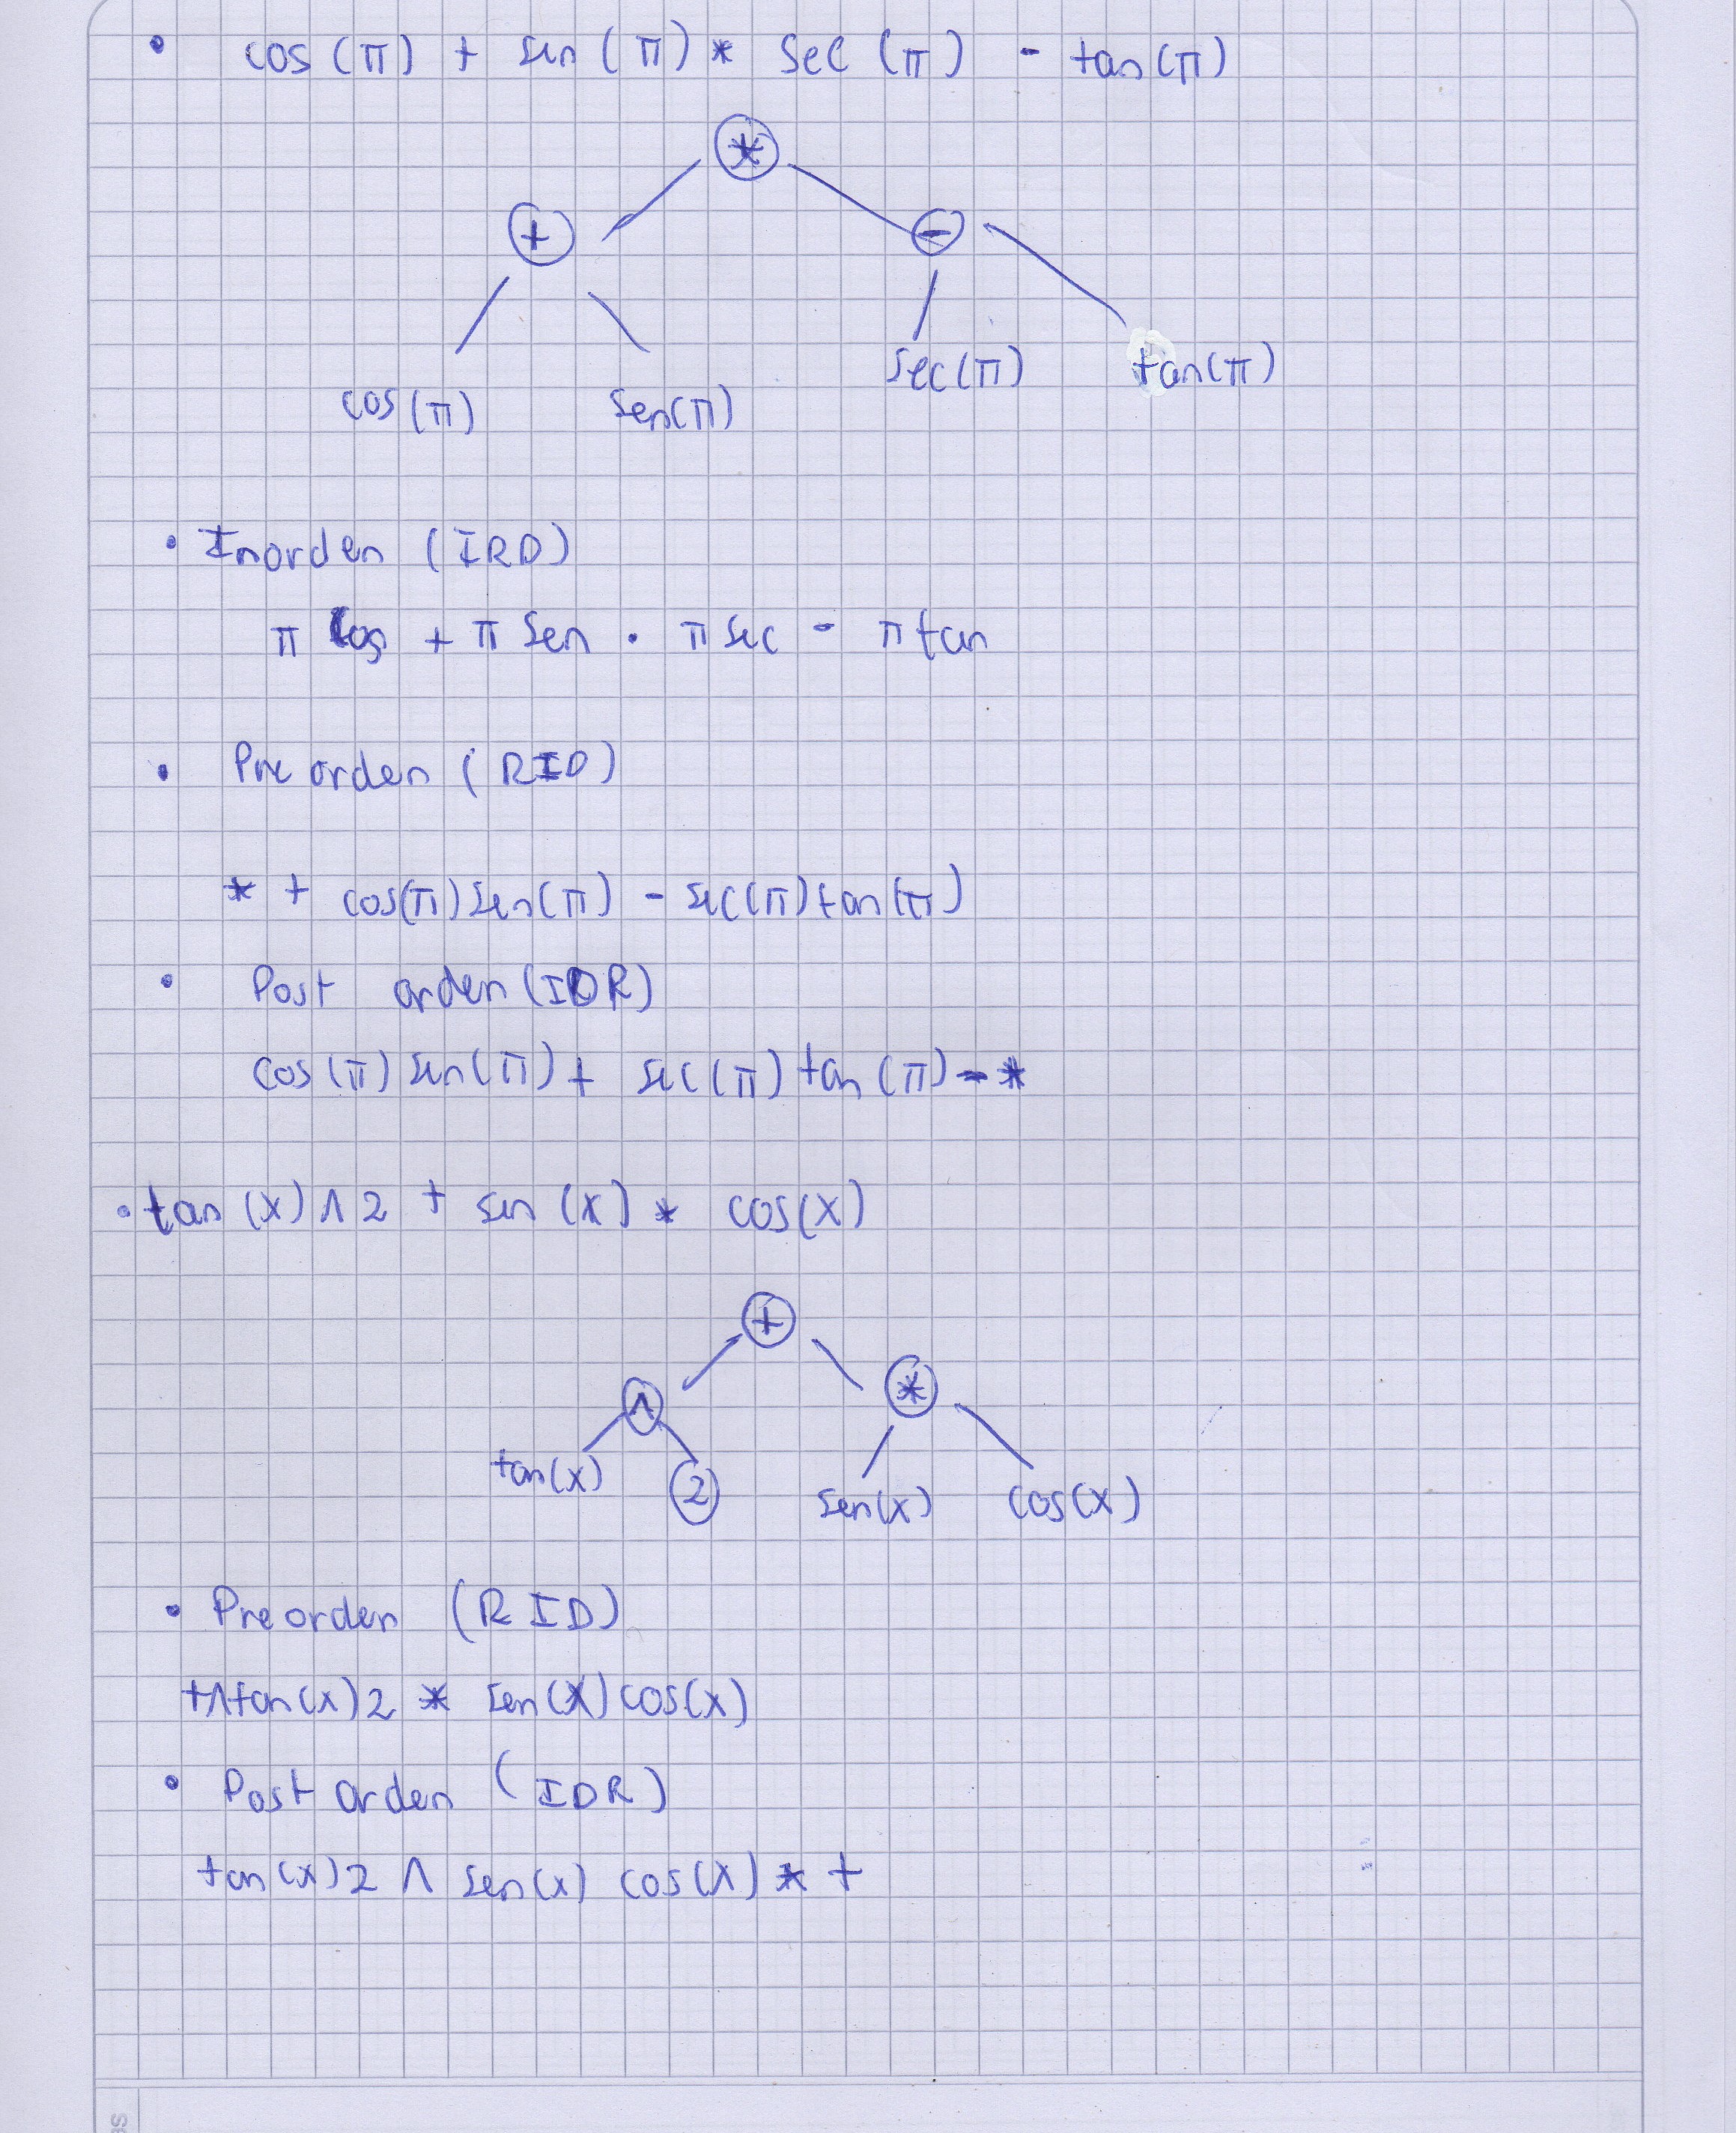 • cos(π) + sen(π) * sec(π) - tan(π)
*
+ -
sec(π) tan(π)
cos(π) sen(π)
• Inorden (IRD)
π cos + π sen · π sec - π tan
• Pre orden (RID)
* + cos(π) sen(π) - sec(π) tan(π)
• Post orden (IDR)
cos(π) sen(π) + sec(π) tan(π) - *
• tan(x) ∧ 2 + sen(x) * cos(x)
+
∧ *
tan(x) 2 sen(x) cos(x)
• Preorden (RID)
+ ∧ tan(x) 2 * sen(x) cos(x)
• Post orden (IDR)
tan(x) 2 ∧ sen(x) cos(x) * +